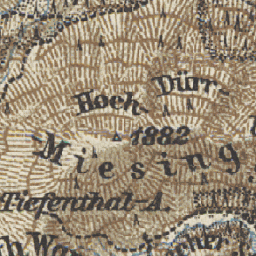 Dürr-
Hoch-
1882
Miesing
Tiefenthal-A.